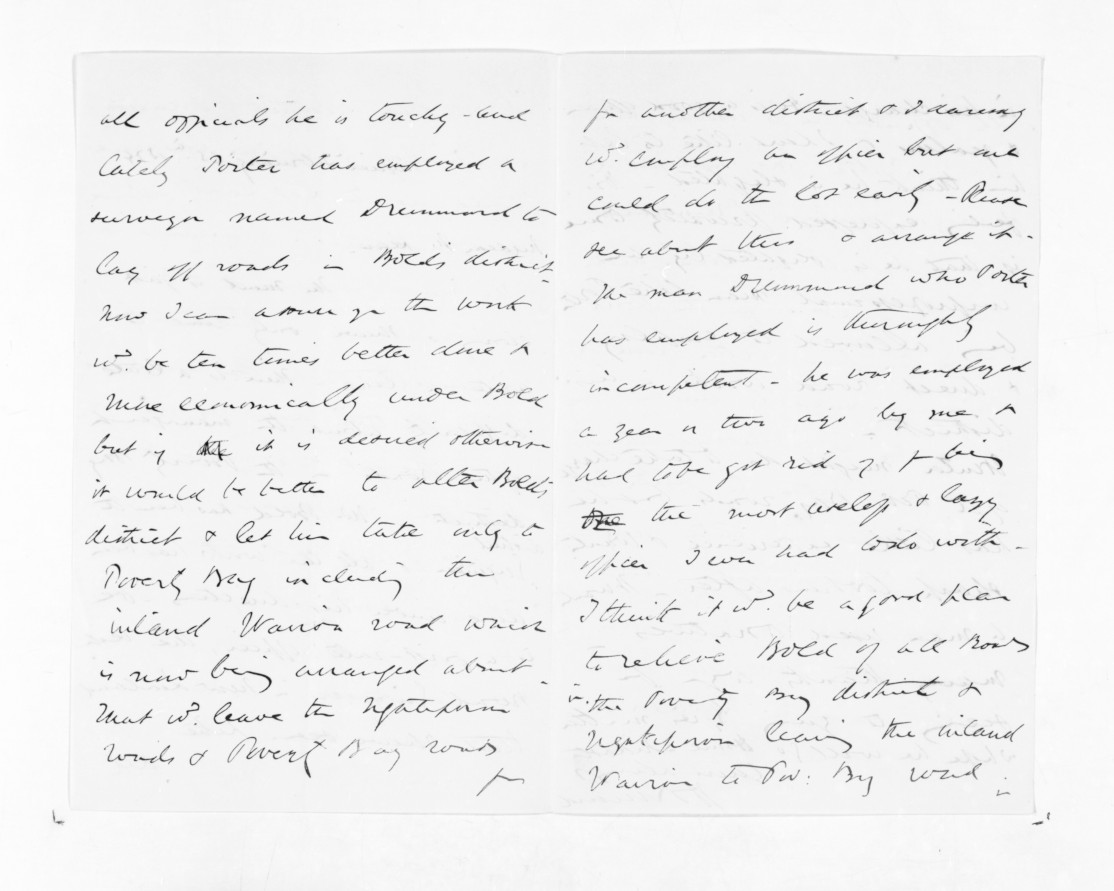 all officials he is touchy - and
lately Porter has employed a
surveyor named Drummond to
lay off roads in Bold's district -
now I can assure you the work
wd. be ten times better done &
more economically under Bold
but if the it is desired otherwise
it would be better to alter Bold's
district & let him take only to
Poverty Bay including the
inland Wairoa road which
is now being arranged about -
That wd. leave the Ngatiporou
roads & Poverty Bay roads
for
for another district & I daresay
wd. employ an officer but one
could do the lot easily - Please
see about this & arrange it -
The man Drummond who Porter
has employed is thoroughly
incompetent - he was employed
a year or two ago by me &
had to be got rid of for being
One the most useless & lazy
officer I ever had to do with -
I think it wd. be a good plan
to relieve Bold of all Roads
in the Poverty Bay district &
Ngatiporou leaving the inland
Wairoa to Pov: Bay road in